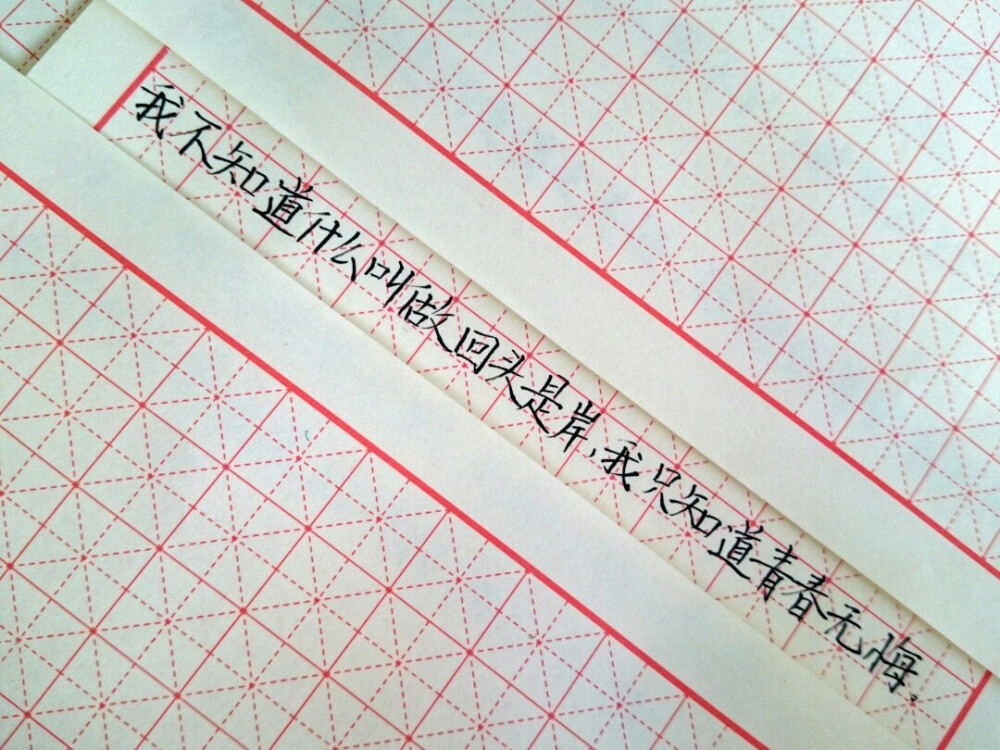 我不知道什么叫做回头是岸,我只知道青春无悔.